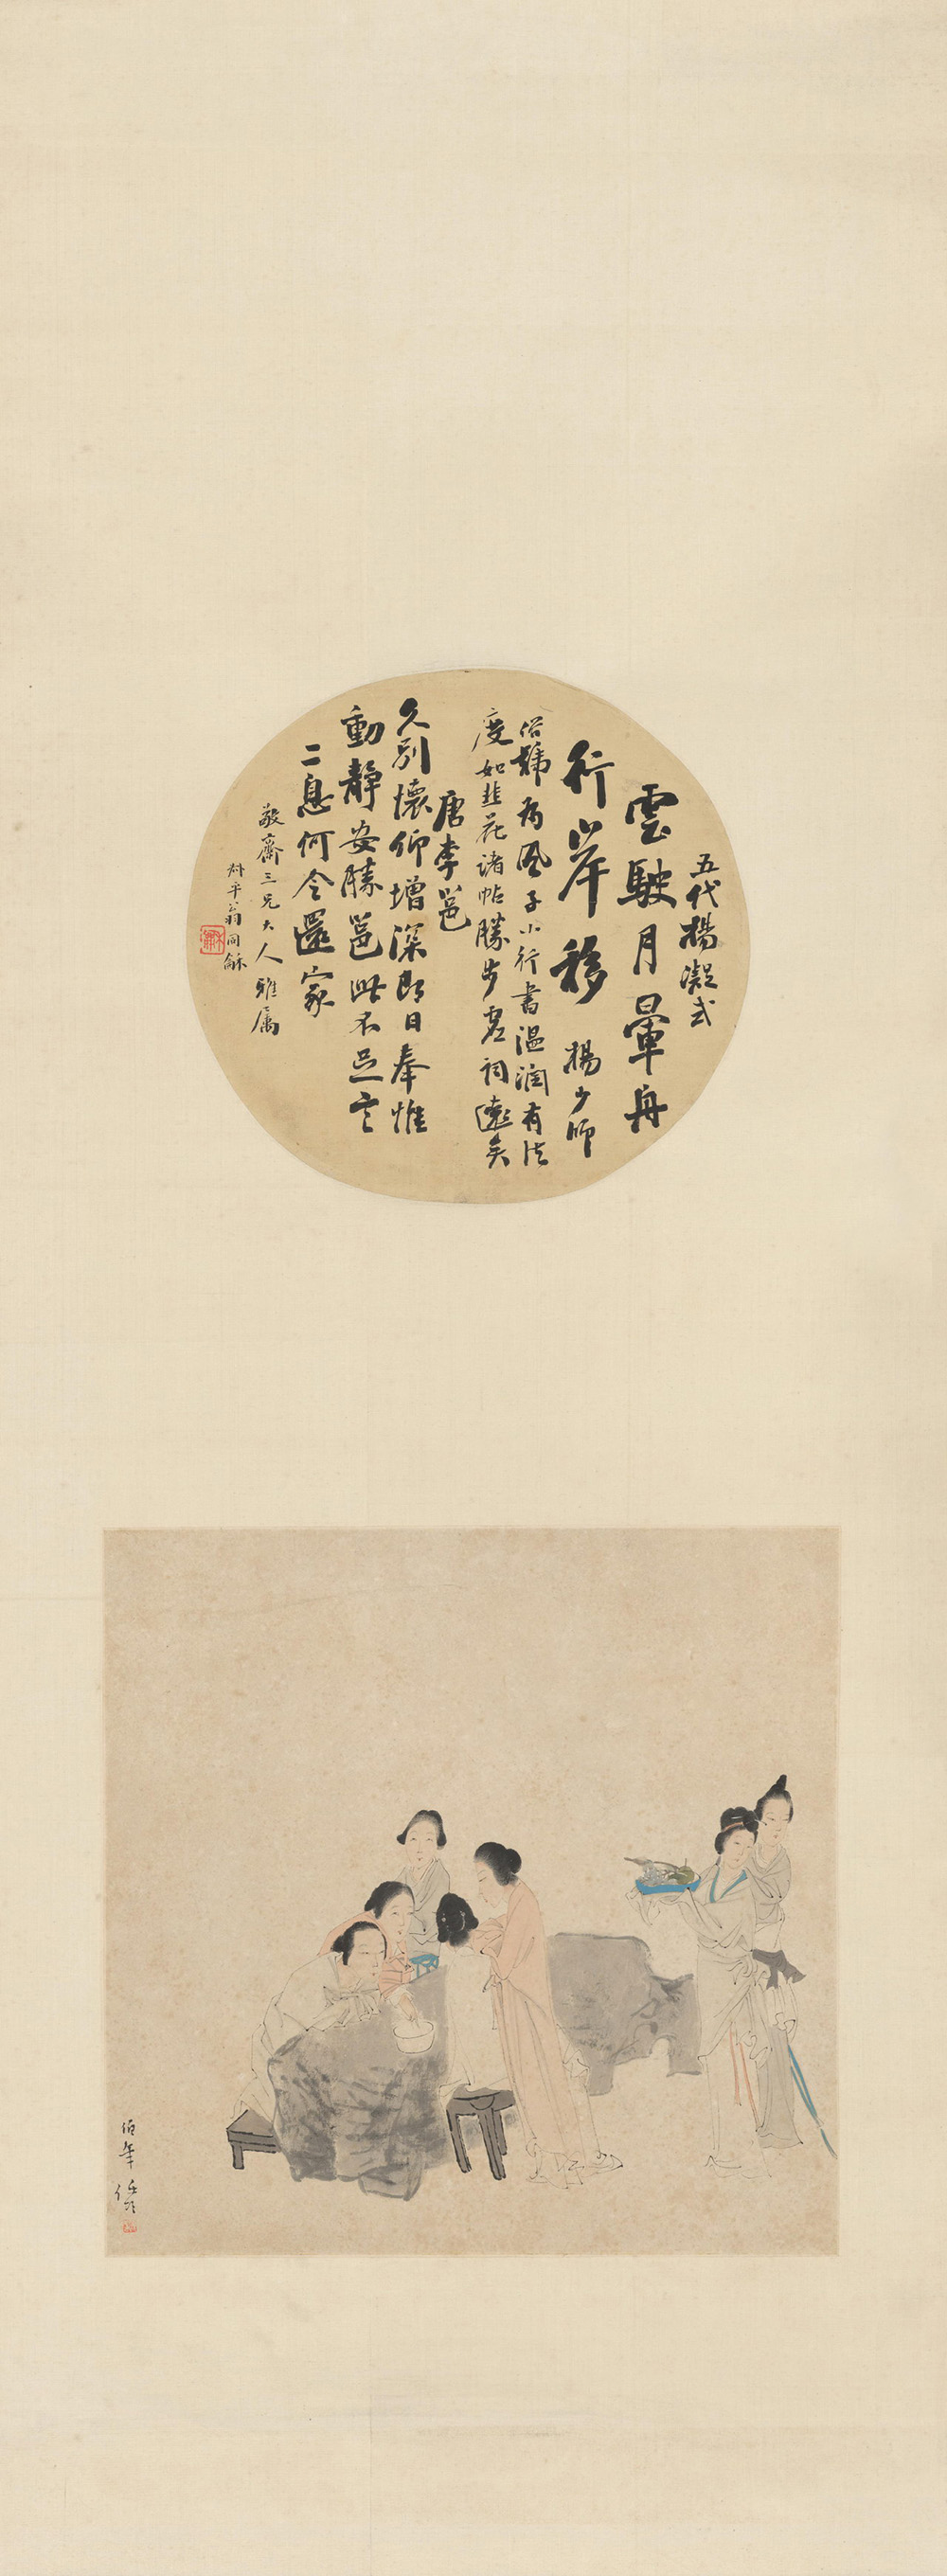 五代楊凝式
雲駛月暈舟
行岸移 楊少師
俗號為風子小行書溫潤有法
度如韭花諸帖勝步虛詞遠矣
唐李邕
久別懷仰增深即日奉惟
動靜安勝邕此不足言
二息何令還家
敬齋三兄大人雅屬
叔平翁同龢
伯年任頤